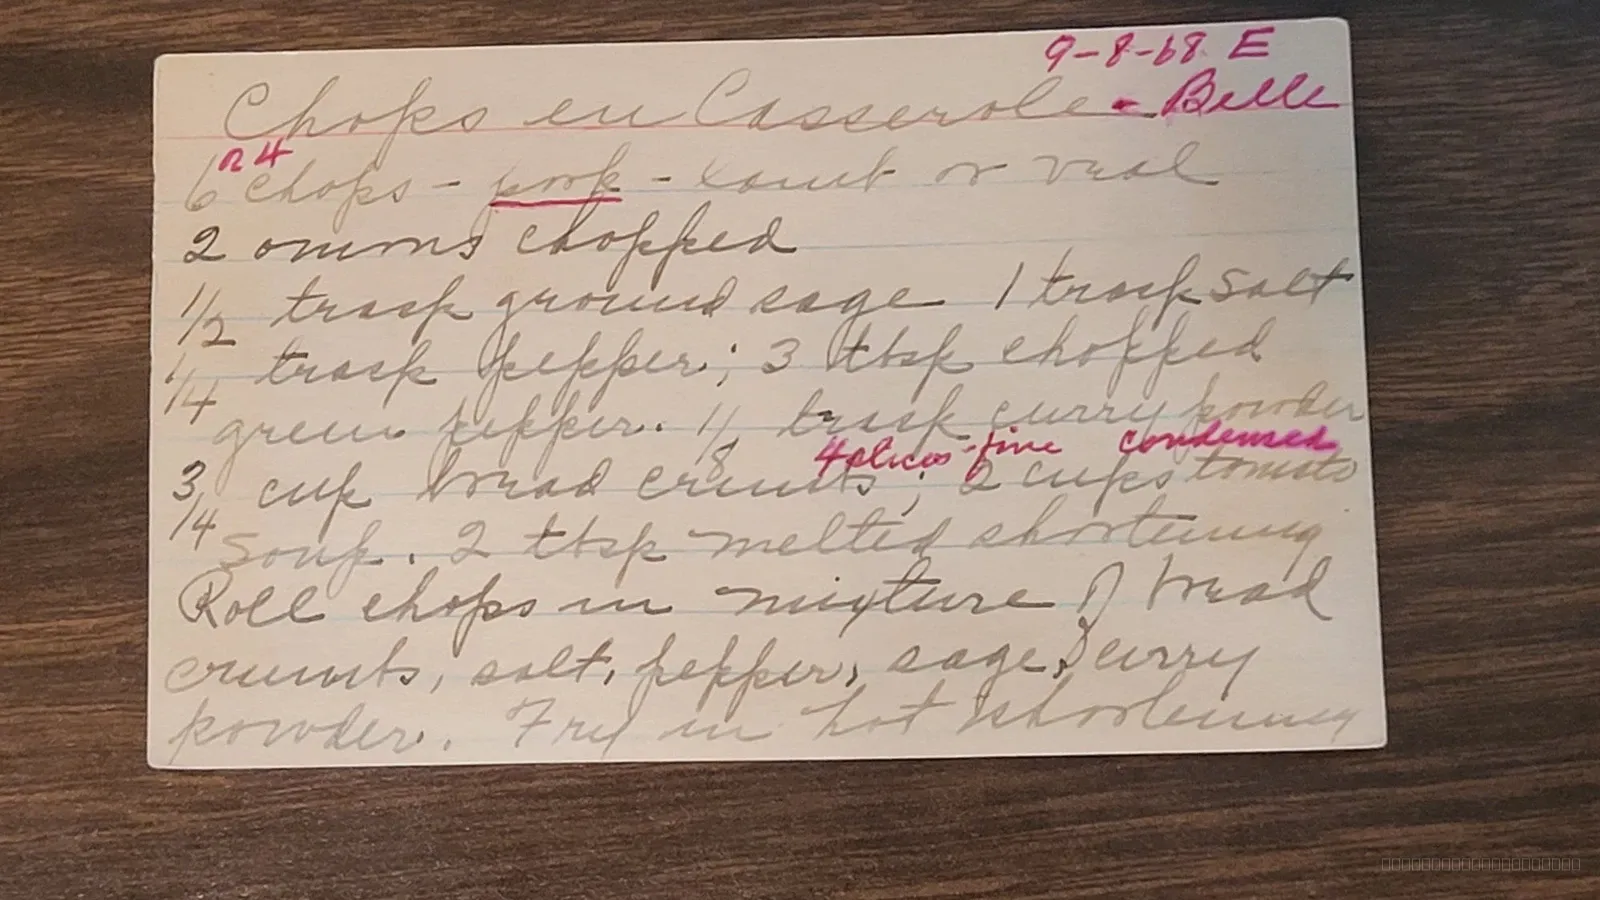 9-8-68 E
Chops en Casserole - Belle
6 or 4 chops - pork - Lamb or veal
2 onions chopped
1/2 teasp ground sage 1 teasp salt
1/4 teasp pepper; 3 tbsp chopped
green pepper. 1/8 teasp curry powder
4 slices - fine condensed
3/4 cup bread crumbs; 2 cups tomato
soup. 2 tbsp melted shortening
Roll chops in mixture of bread
crumbs, salt, pepper, sage, & curry
powder. Fry in hot shortening